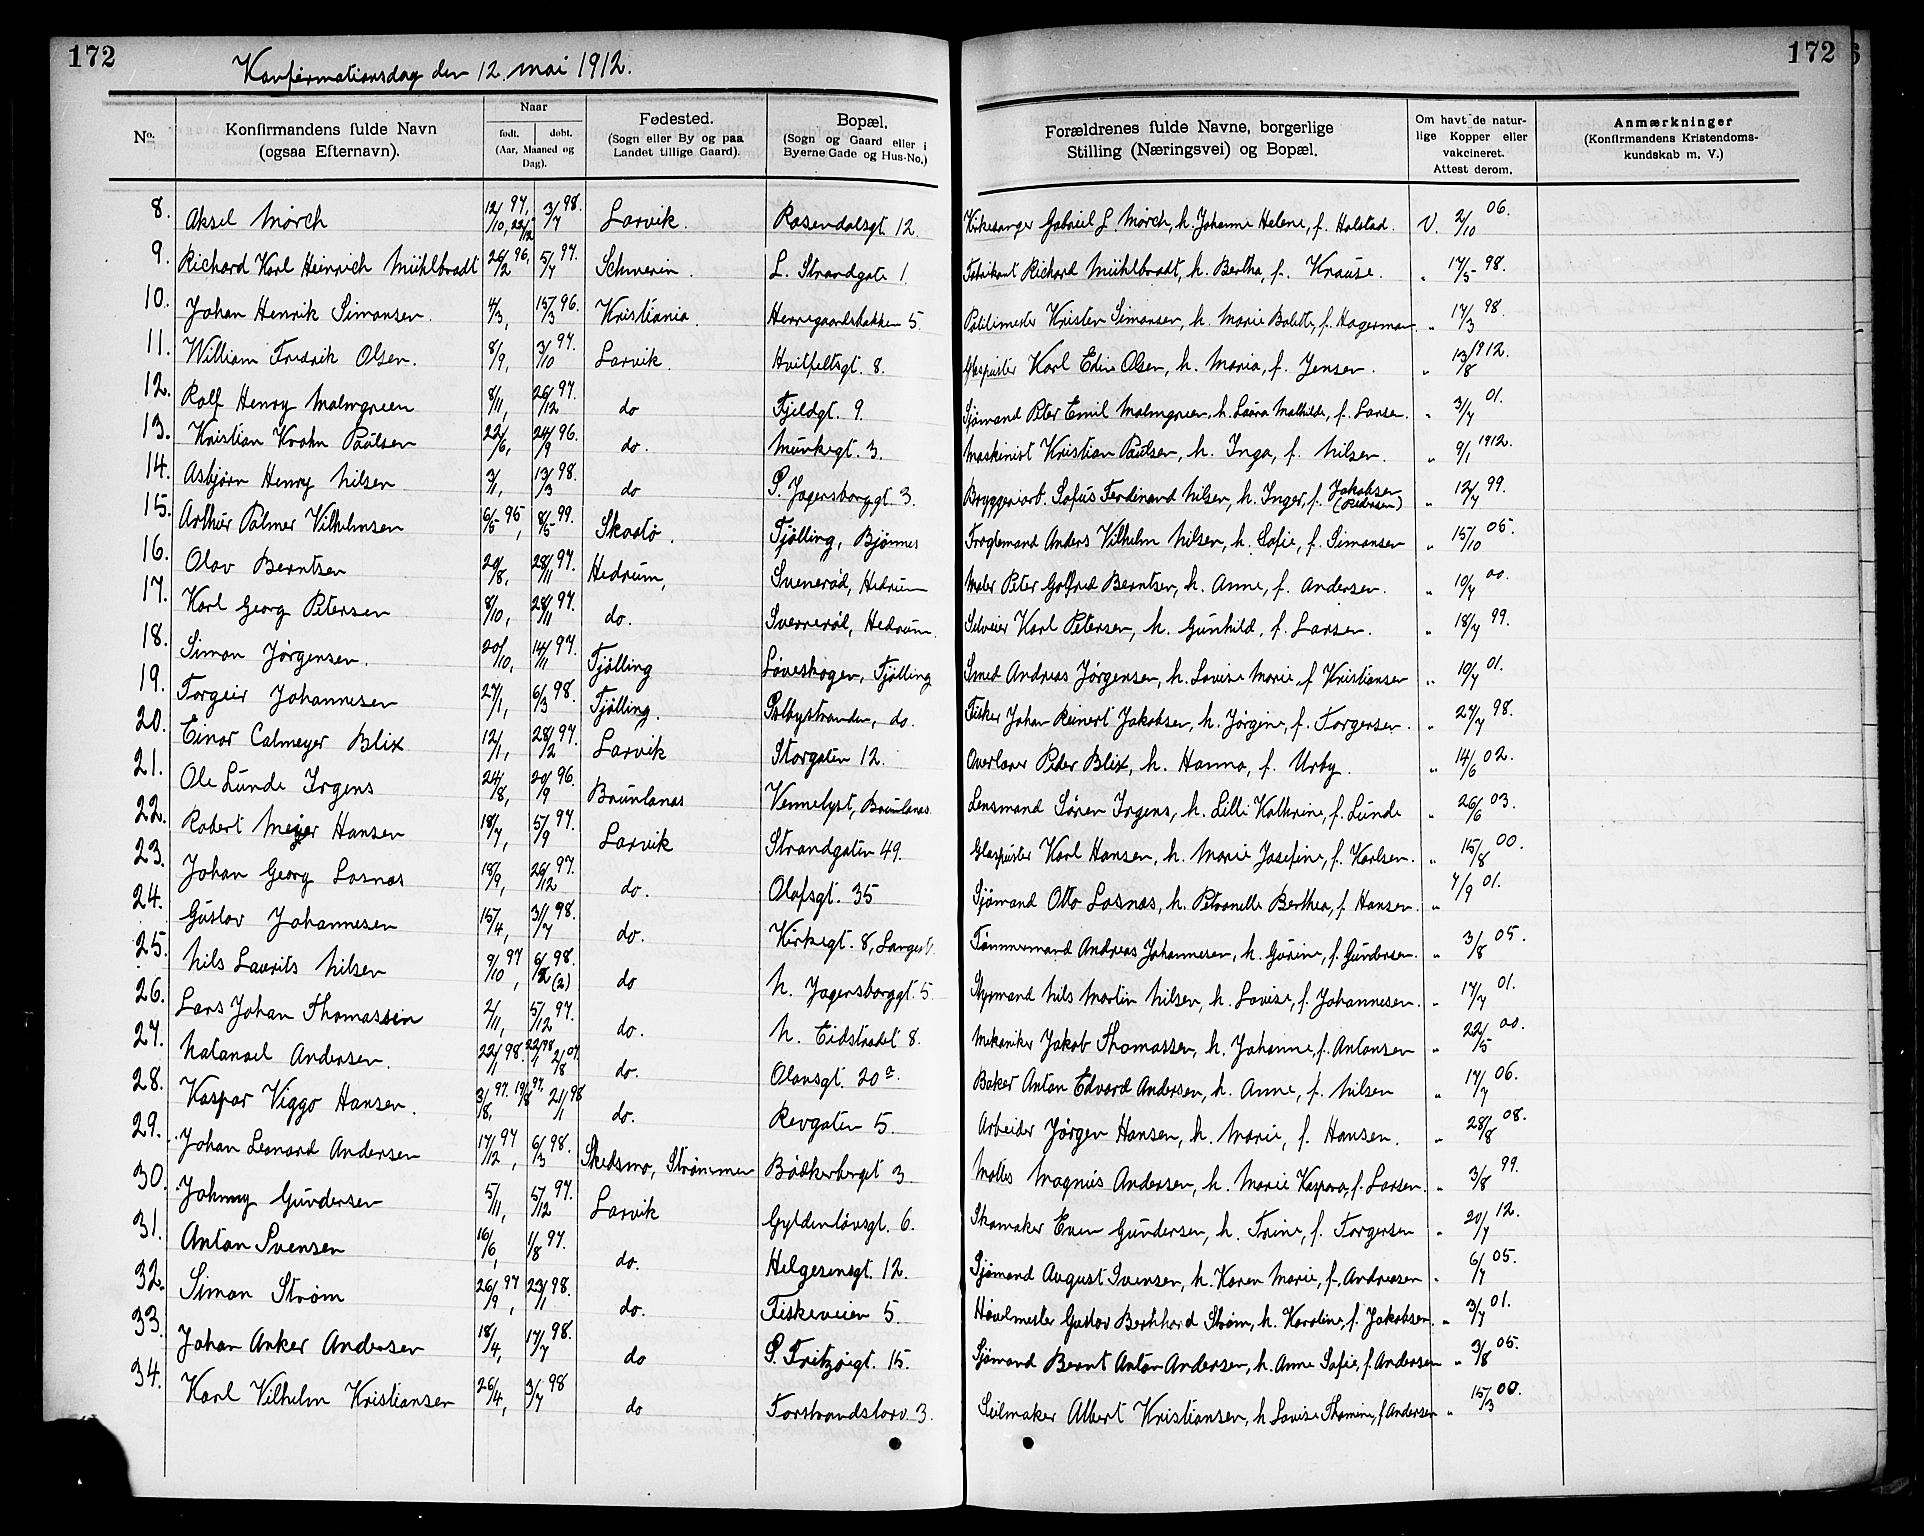 172
172
Konfirmationsdag den 12. mai 1912.
No. Konfirmandens fulde Navn (ogsaa Efternavn). Naar født. døbt. (Aar, Maaned og Dag). Fødested. (Sogn eller By og paa Landet tillige Gaard). Bopæl. (Sogn og Gaard eller i Byerne Gade og Hus-No.) Forældrenes fulde Navne, borgerlige Stilling (Næringsvei) og Bopæl. Om havt de naturlige Kopper eller vakcineret. Attest derom. Anmærkninger (Konfirmandens Kristendomskundskab m. V.)
8. Aksel Mørch 12/10 97, 22/12 3/7 98. Larvik. Rosendalsgt. 12. Kirkesanger Gabriel L. Mørch, h. Johanne Helene, f. Halstad. V. 2/10 06.
9. Richard Karl Heinrich Mühlbradt 26/2 96, 5/7 97. Schwerin. L. Strandgate 1. Fabrikant Richard Mühlbradt, h. Bertha, f. Krause. " 17/5 98.
10. Johan Henrik Simonsen. 4/3, 15/3 96. Kristiania. Herregaardsbakken 5. Politimester Kristen Simonsen, h. Marie Bolette, f. Hagerman " 17/3 98.
11. William Fredrik Olsen. 8/9, 3/10 97. Larvik. Hvitfeltsgt. 8. Glaspuster Karl Edin Olsen, h. Maria, f. Jensen. " 13/8 1912.
12. Rolf Henry Malmgreen 8/11, 26/12 97. do Fjeldgt. 9. Sjømand Peter Emil Malmgreen, h. Laura Mathilde, f. Larsen. " 3/7 01.
13. Kristian Krohn Paulsen 22/6, 24/9 96. do. Munkegt. 3. Maskinist Kristian Paulsen, h. Inga, f. Nilsen. " 9/1 1912.
14. Asbjørn Henry Nilsen 3/1, 13/3 98. do S. Jagersborggt. 3. Bryggeriarb. Sofus Ferdinand Nilsen, h. Inger, f. Jakobsen (Pedersen) " 12/7 99.
15. Arthur Palmer Vilhelmsen 6/5 95, 8/5 99. Skaatø. Tjølling, Bjønnes Fragtemand Anders Vilhelm Nilsen, h. Sofie, f. Simonsen " 15/10 05.
16. Olav Berntsen 20/8, 28/11 97. Hedrum, Svenerød, Hedrum Maler Peter Gotfred Berntsen, h. Anne, f. Andersen. " 10/7 00.
17. Karl Georg Petersen 8/10, 28/11 97. do. Sverrerød, Hedrum. Selveier Karl Petersen, h. Gunhild, f. Larsen. " 18/7 99.
18. Simon Jørgensen. 20/10, 14/11 97. Tjølling Løveskogen, Tjølling Smed Andreas Jørgensen, h. Lovise Marie, f. Kristiansen " 10/7 01.
19. Torgeir Johannesen 27/1, 6/3 98. Tjølling. Solbystranden, do. Fisker Johan Reinert Jakobsen, h. Jørgine, f. Torgersen. " 27/7 98.
20. Einar Calmeyer Blix 12/1, 28/2 97. Larvik Storgaten 12. Overlærer Peder Blix, h. Hanna, f. Urby. " 14/6 02.
21. Ole Lunde Irgens 24/8, 20/9 96. Brunlanæs Vennelyst, Brunlanæs. Lensmand Søren Irgens, h. Lilli Kathrine, f. Lunde " 26/6 03.
22. Robert Meijer Hansen 18/7, 5/9 97. Larvik Strandgaten 49. Glaspuster Karl Hansen, h. Marie Josefine, f. Karlsen. " 15/8 00.
23. Johan Georg Lasnas 18/9, 26/12 97. do. Olafsgt. 35 Sjømand Otto Lasnas, h. Petronelle Berthea, f. Hansen. " 4/9 01.
24. Gustav Johannesen 15/4, 31/7 98. do. Kirkegt. 8, Langest. Tømmermand Andreas Johannesen, h. Gurine, f. Gundersen. " 3/8 05.
25. Nils Laurits Nilsen 9/10 97, 6/2 98. (2) do N. Jagersborggt. 5 Styrmand Nils Martin Nilsen, h. Lovise, f. Johannesen. " 17/7 01.
26. Lars Johan Thomassen 2/11, 5/12 97. do. N. Eidstrædet 8. Mekaniker Jakob Thomassen, h. Johanne, f. Antonsen " 22/5 00.
27. Natanael Andersen. 22/1 98. 22/1 98 2/8 07. do. Olavsgt. 20a. Baker Anton Edvard Andersen, h. Anne, f. Nilsen " 17/7 06.
28. Kaspar Viggo Hansen. 3/8, 97. 19/8 97. 21/1 98 do. Revgaten 5. Arbeider Jørgen Hansen, h. Marie, f. Hansen. " 28/8 08.
29. Johan Leonard Andersen 17/12 97, 6/3 98. Skedsmo, Strømmen Bødkerberget 3. Møller Magnus Andersen, h. Marie Kaspara, f. Larsen. " 3/8 99.
30. Johnny Gundersen 5/11, 5/12 97. Larvik Gyldenløvsgt. 6. Skomaker Even Gundersen, h. Trine, f. Torgersen " 20/7 12.
31. Anton Svensen 16/6, 1/8 97. do. Helgesensgt. 12. Sjømand August Svensen, h. Karen Marie, f. Andreasen " 6/7 05.
32. Simon Strøm 26/9 97, 23/1 98. do. Fiskeveien 5. Høvelmester Gustav Bernhard Strøm, h. Karoline, f. Jakobsen. " 3/7 01.
33. Johan Anker Andersen 18/4, 17/7 98. do S. Fritzøegt. 15. Sjømand Bernt Anton Andersen, h. Anne Sofie, f. Andersen " 3/8 05.
34. Karl Vilhelm Kristiansen 26/4, 3/7 98 do Torstrandstorv 3. Seilmaker Albert Kristiansen, h. Lovise Thomine, f. Andersen " 15/3 00.